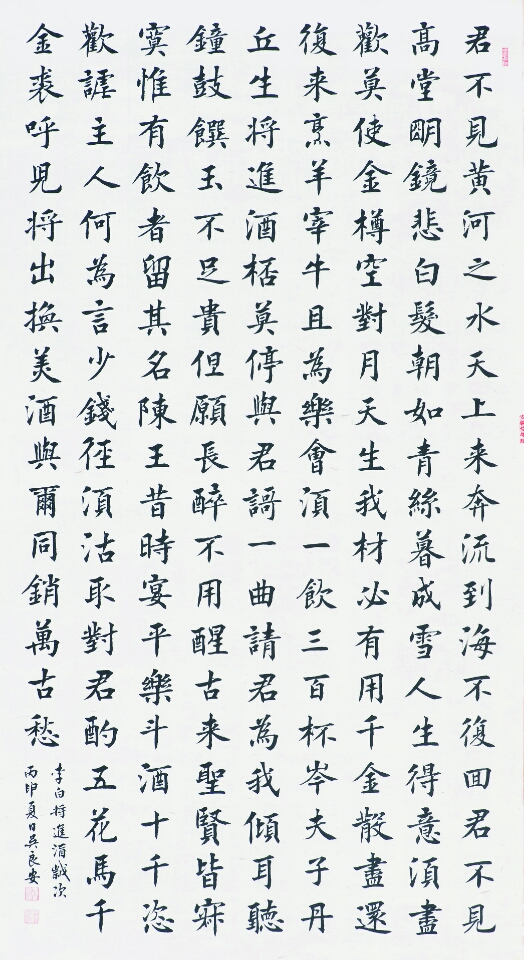 君不見黄河之水天上来奔流到海不復回君不見
高堂明鏡悲白髮朝如青絲暮成雪人生得意須盡
歡莫使金樽空對月天生我材必有用千金散盡還
復来烹羊宰牛且為樂會須一飲三百杯岑夫子丹
丘生将進酒杯莫停與君謌一曲請君為我傾耳聽
鐘鼓饌玉不足貴但願長醉不用醒古来聖賢皆寂
寞惟有飲者留其名陳王昔時宴平樂斗酒十千恣
歡謔主人何為言少錢徑須沽取對君酌五花馬千
金裘呼児将出換美酒與爾同銷萬古愁
李白将進酒歲次
丙申夏日吳良安